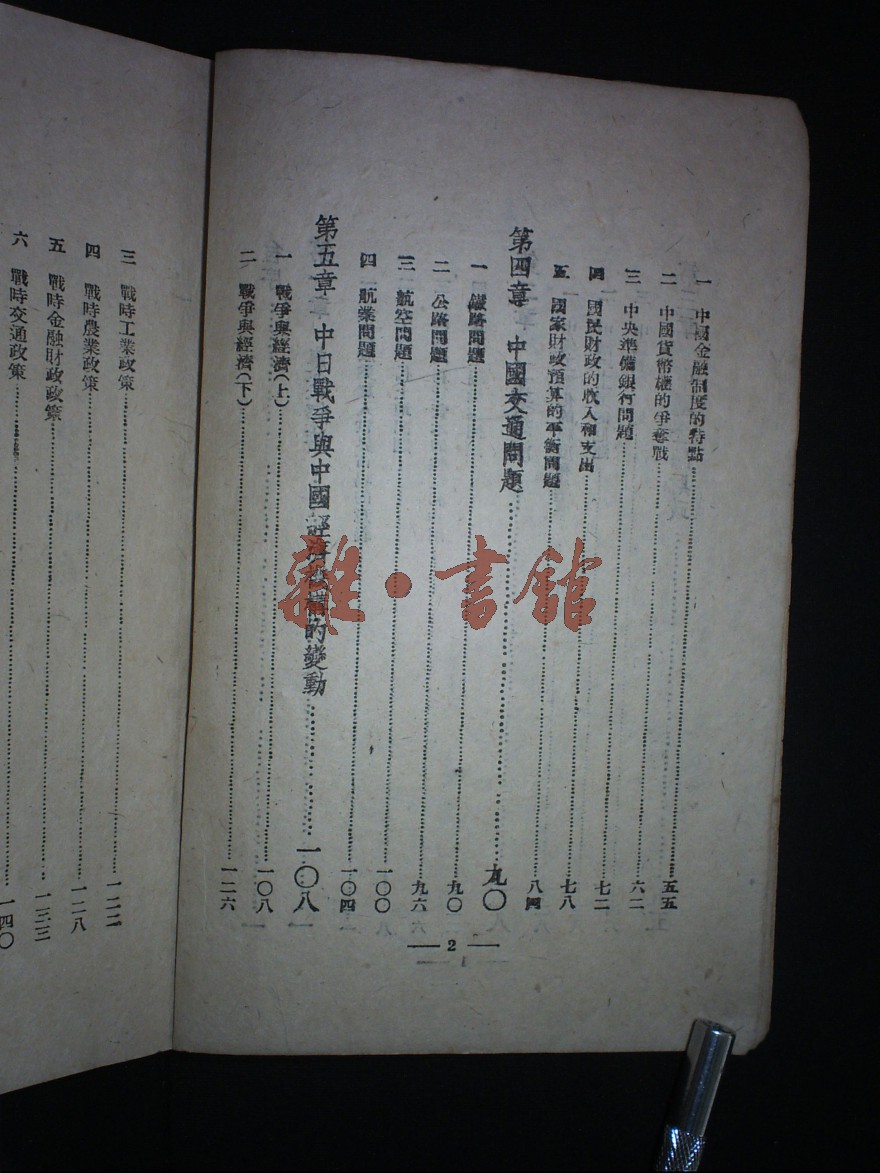 一 中國金融制度的特點……五五
二 中國貨幣權的爭奪戰……六二
三 中央準備銀行問題……七二
四 國民財政的收入和支出……七八
五 國家財政預算的平衡問題……八四
第四章 中國交通問題……九〇
一 鐵路問題……九〇
二 公路問題……九六
三 航空問題……一〇〇
四 航業問題……一〇四
第五章 中日戰爭與中國經濟機構的變動……一〇八
一 戰爭與經濟（上）……一〇八
二 戰爭與經濟（下）……一二六
— 2 —
三 戰時工業政策……一二二
四 戰時農業政策……一二八
五 戰時金融財政政策……一三三
六 戰時交通政策……一四〇
雜·書館